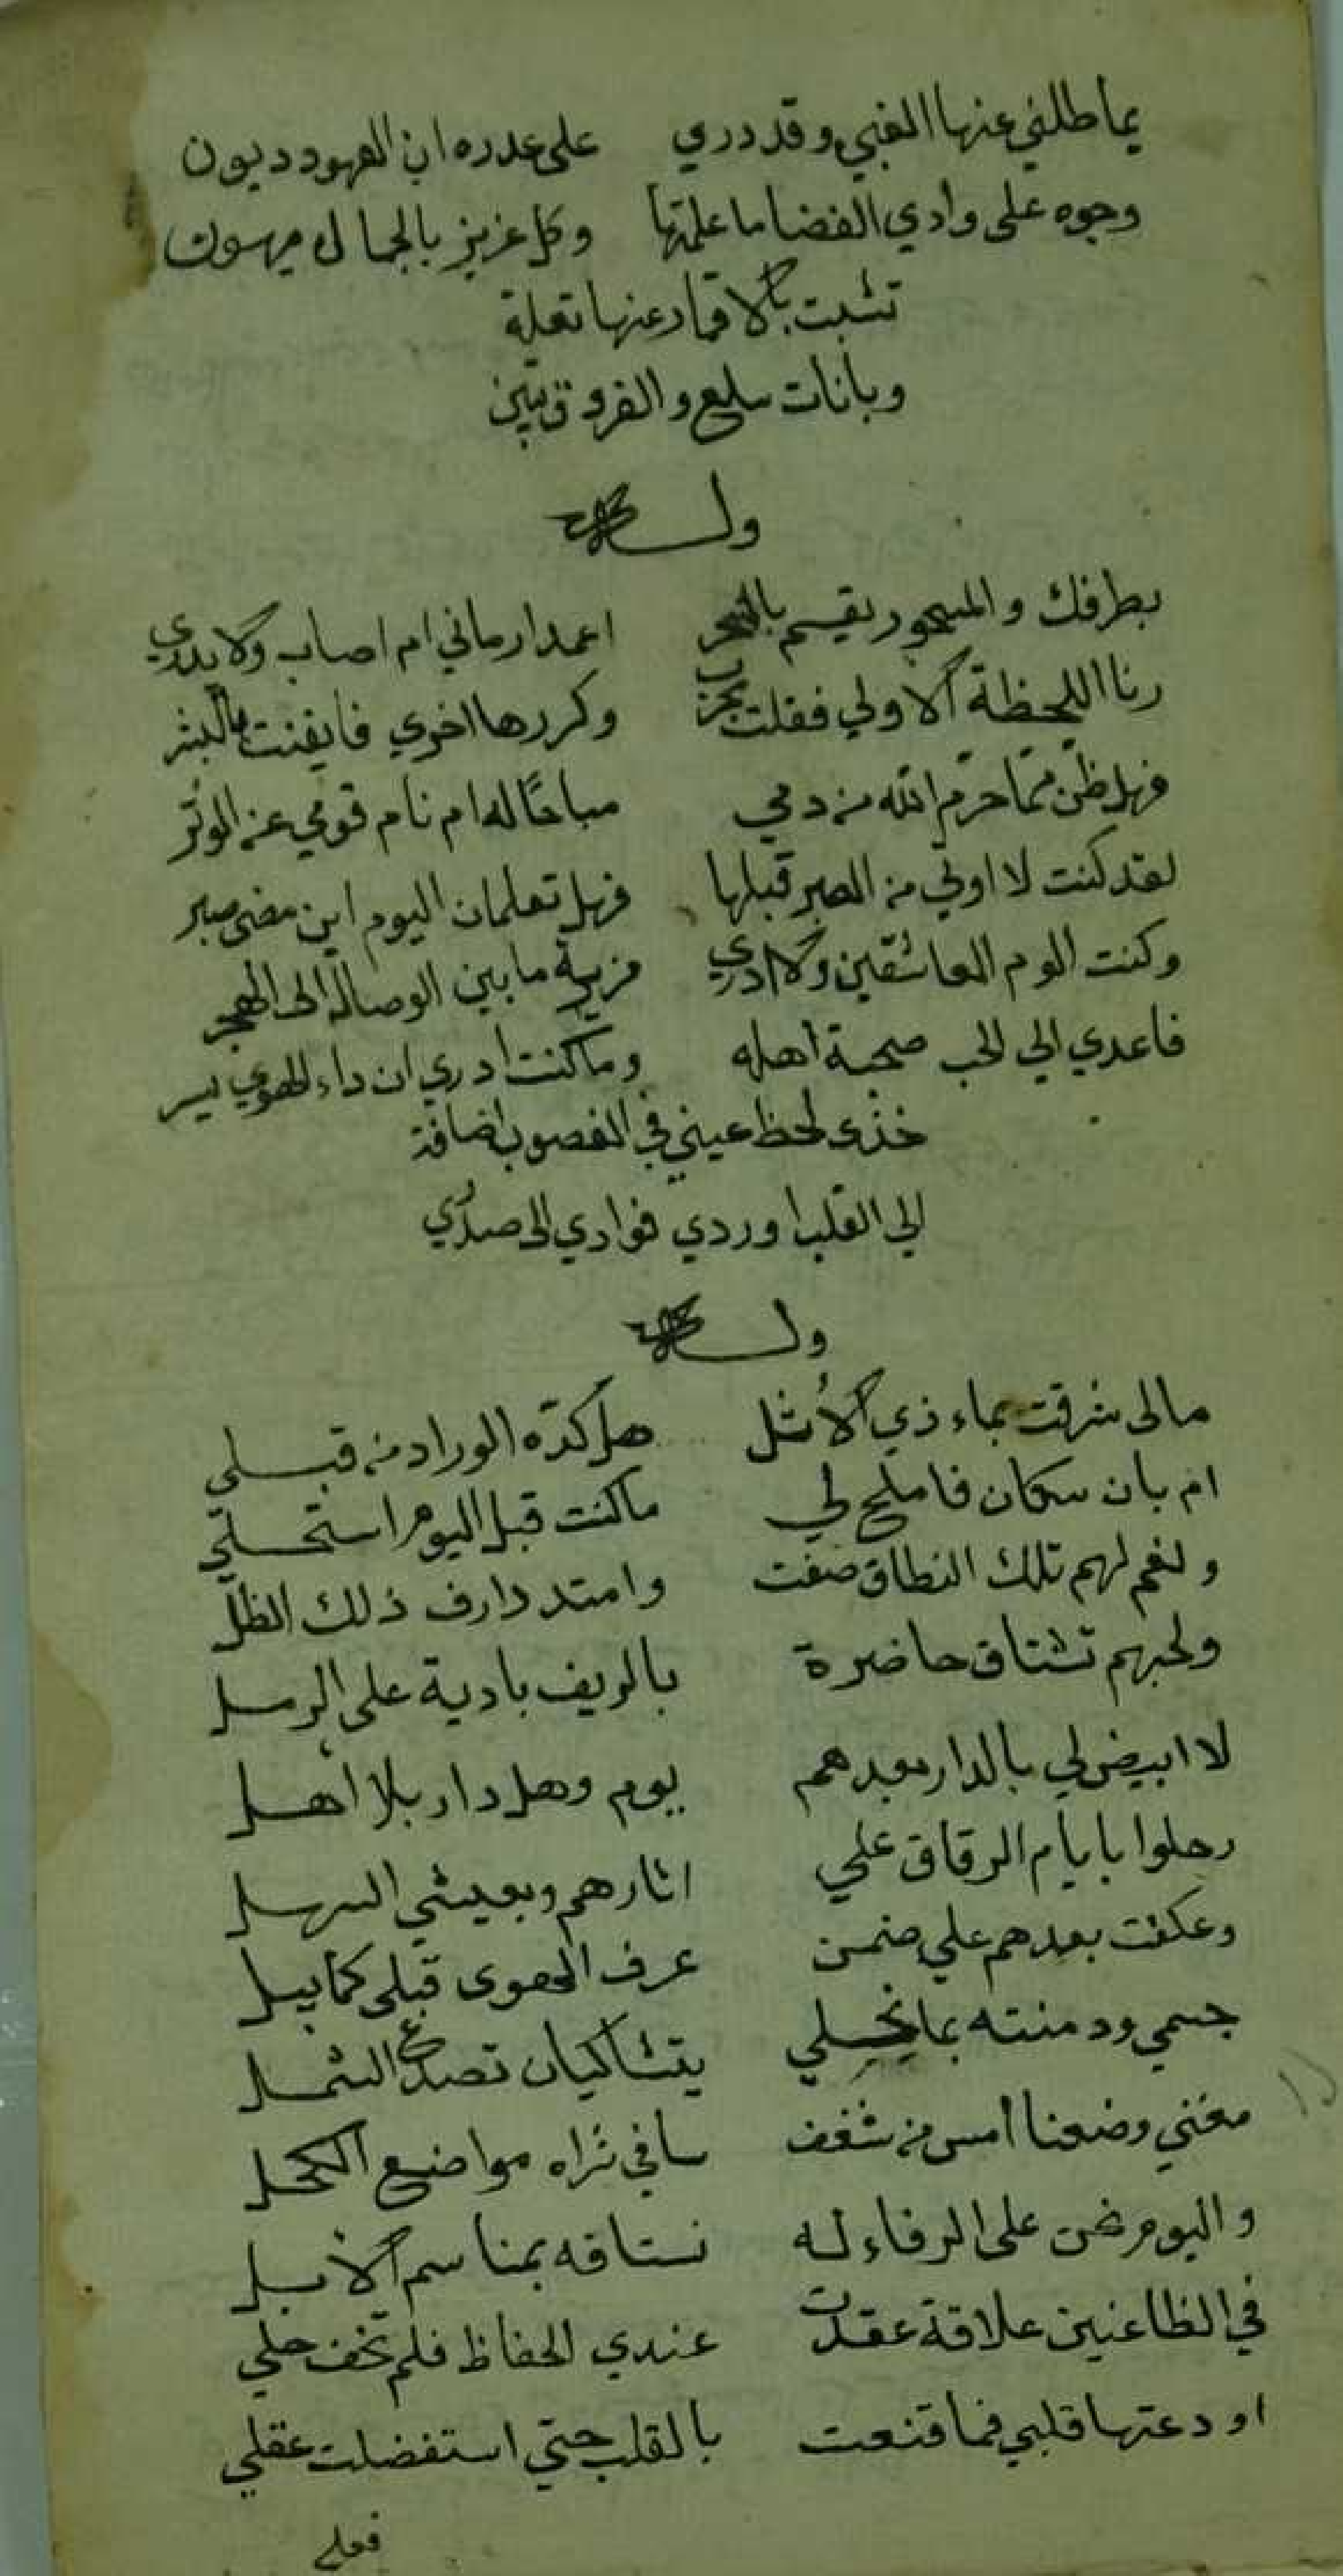 يماطلني عنها الغبي وقد دري على عدره ان العهود ديون
وجوه على وادي الفضا ما علمتها وكل عزيز بالجمال يهون
تشبت بالاقمار عنها تعلة
وبانات سلع والفروق تبين
وله
بطرفك والمسحور يقسم بالسحر اعمدا رماني ام اصاب ولا يدري
رنا اللحظة الاولي فقلت مجرب وكررها اخري فايقنت بالشر
فهل ظن مما حرم الله من دمي مباحًا له ام نام قومي عن الوتر
لقد كنت لا اوتي من الصبر قبلها فهل تعلمان اليوم اين مضى صبر
وكنت الوم العاشقين ولا ادري مزية ما بين الوصال الى الهجر
فاعدي الي الحب صحبة اهله وما كنت ادري ان داء الهوي يسر
خذي لحظ عيني في الغصوب اضافة
الي القلب او ردي فوادي الى صدري
وله
مالى شرقت بماء ذي الأثل هل كدّه الوراد من قبلى
ام بان سكان فاملح لي ما كنت قبل اليوم استحلي
ولغم لهم تلك النطاق صفت وامتد دارف ذلك الظل
ولحبهم تشتاق حاضرة بالريف بادية على الرمل
لا ابيض لي بالدار بعدهم يوم وهل دار بلا اهل
رحلوا بايام الرقاق علي اثارهم وبعيشي السهل
وعكفت بعدهم علي ضمن عرف الهوى قبلى كما يبل
جسمي ودمنته بما نحلي يتشاكيان تصدع الشمل
مغني وضعنا امس من شغف سافي ثراه مواضع الكحل
واليوم نحن على الرفاء له نستاقه بمناسم الأبل
في الظاعنين علاقة عقدت عندي الحفاظ فلم تخف حلي
اودعتها قلبي فما قنعت بالقلب حتي استفضلت عقلي
فعلي